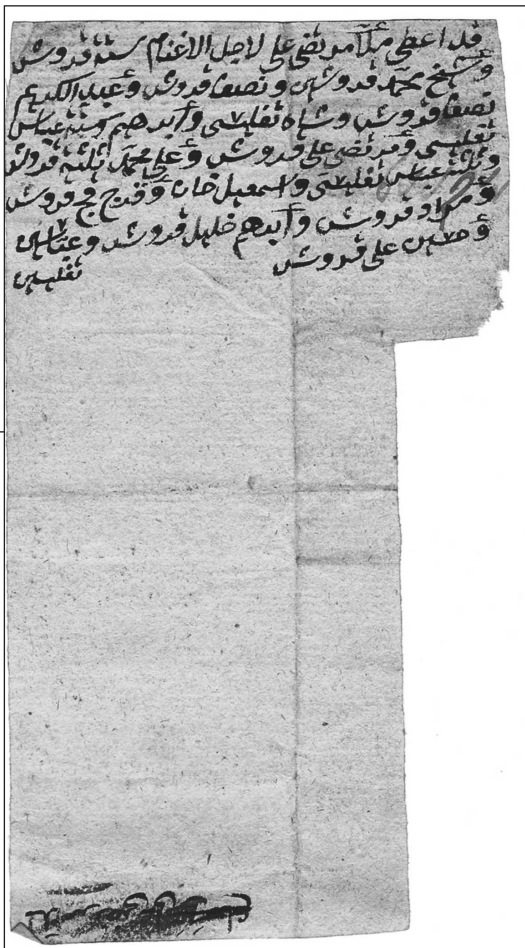 قد اعطى ملآ مرتضى على لاجل الاغنام ستة قروش
وشيخ محمد قروشين ونصف قروش وعبد الكريم
نصف قروش وشاه تفليسى وأبرهيم ستة عباس
تفليسى ومرتضى على قروش وعلى محمد ثلثة قروش
عباس تفليسى واسمعيل خان وفرج قروش
ومراد قروش وأبرهم خليل قروش وعباسين
وحسين على قروش تفليسين